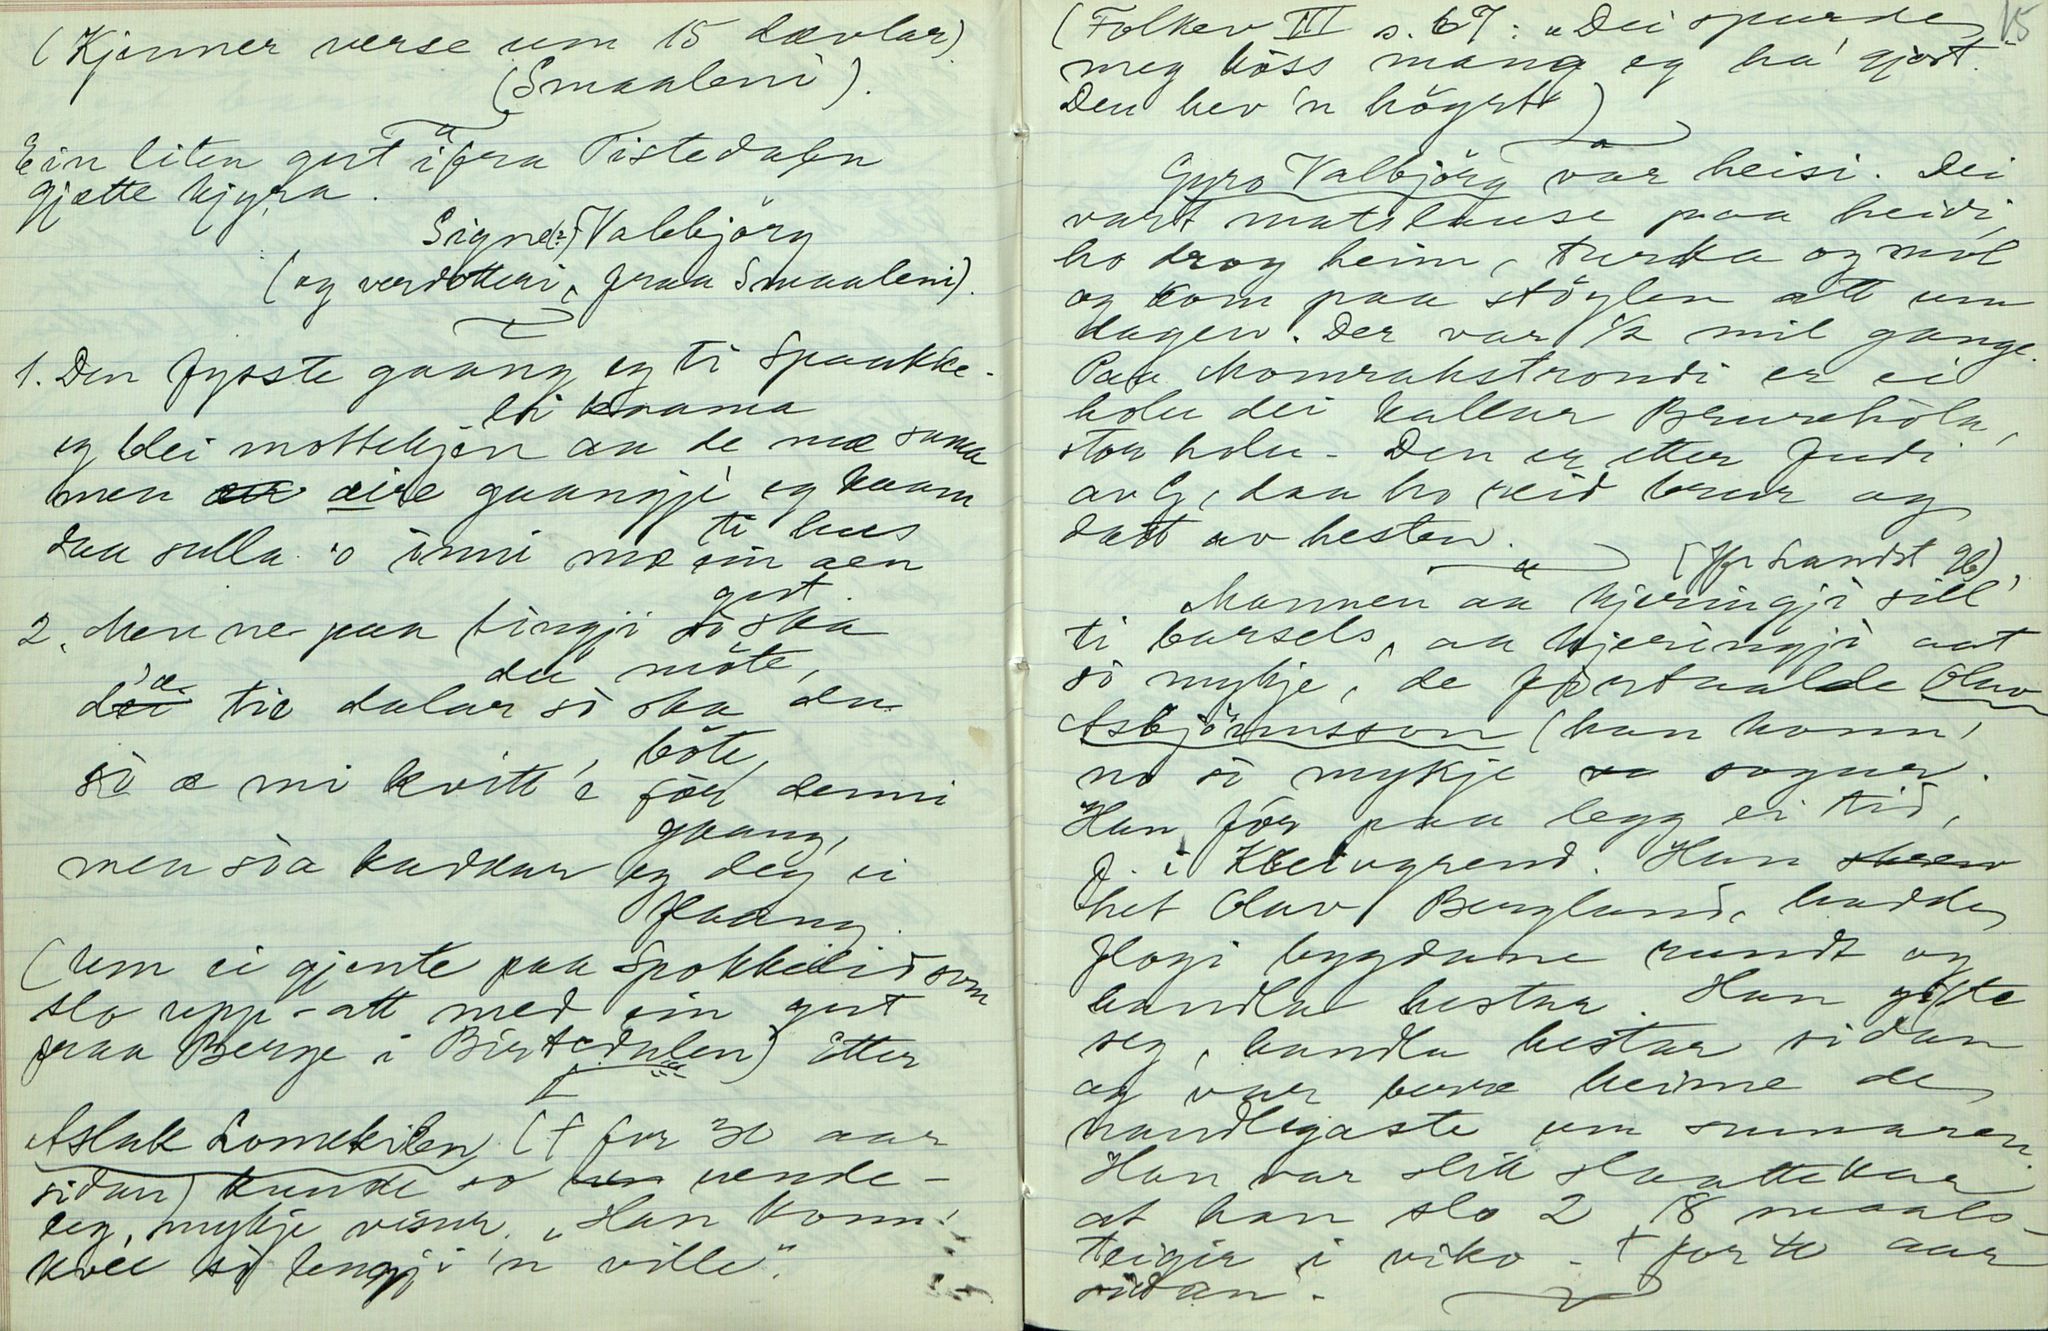 (Kjenner verse um 15 dævlar)
(Smaaleni).
Ein liten gut ifra Tistedalen
gjætte kjyra.
Signe(?) Valbjörg
(og verdotteri, fraa Smaaleni).
1. Den fysste gaang eg ti Spaakke-
li kaama
eg blei mottekjen aa de mæ sama
men aire gaangji eg kaam
ti hus
daa sulla o inni mæ ein aen
gut.
2. Men ne paa tingji so ska
du möte,
d'æ tie dalar so ska du
böte,
so æ mi kvitt'e för denni
gaang,
men sia kaddar eg deg i
faang.
(um ei gjente paa Spokkelid som
slo upp-att med ein gut
fraa Berge i Birtedalen) Etter
Aslak Lomekilen († for 30 aar
sidan) kunde so uende-
leg, mykje visur. „Han konn'
kvee so lengji 'n ville".
15
(Folkev III s. 67: „Dei spurde
meg höss mang eg ha' gjort.
Den hev 'n högrt")
Gyro Valbjörg var heisi. Dei
vart matslause paa heidi,
ho drog heim, turka og mol
og kom paa stöylen att um
dagen. Der var ½ mil gange.
Paa Momrakstrondi er ei
holu dei kallar Brureholu,
stor holu - Den er etter Gudi
av G, daa ho reid brur og
datt av hesten.
(Jfr Landst 96)
Mannen aa kjeringji sill'
ti barsels, aa kjeringji aat
so mykje, de fortaalde Olav
Asbjörnsson (han konn'
no so mykje sogur.
Han för paa legg ei tid,
f. i Kleivgrend. Han
het Olav Bergland, hadde
flogi bygdane rundt og
handla hestar. Han gifte
seg, handla hestar sidan
og var bere heime de
naudlegaste um sumaren.
Han var slik slaattekar
at han slo 2 18 maals-
teigir i viko - † for 40 aar
sidan.